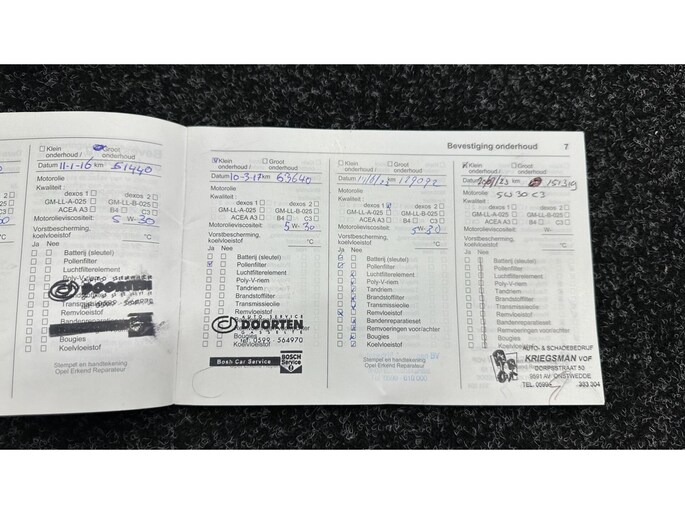 Bevestiging onderhoud 7
Klein onderhoud / Groot onderhoud
Datum 11-1-16 km 61440
Motorolie
Kwaliteit :
dexos 1 dexos 2
GM-LL-A-025 GM-LL-B-025
ACEA A3 B4 C3
Motorolieviscositeit: 5 W- 30
Vorstbescherming,
koelvloeistof °C
Ja Nee
Batterij (sleutel)
Pollenfilter
Luchtfilterelement
Bougies
Koelvloeistof
DOORTEN
Stempel en handtekening
Opel Erkend Reparateur
Klein onderhoud / Groot onderhoud
Datum 10-3-17 km 63640
Motorolie
Kwaliteit :
dexos 1 dexos 2
GM-LL-A-025 GM-LL-B-025
ACEA A3 B4 C3
Motorolieviscositeit: 5 W- 30
Vorstbescherming,
koelvloeistof °C
Ja Nee
Batterij (sleutel)
Pollenfilter
Luchtfilterelement
Poly-V-riem
Tandriem
Brandstoffilter
Transmissieolie
Remvloeistof
AUTO SERVICE
DOORTEN
Tel. 0599 - 564970
Bosch Car Service
BOSCH
Service
Klein onderhoud / Groot onderhoud
Datum km
Motorolie
Kwaliteit :
dexos 1 dexos 2
GM-LL-A-025 GM-LL-B-025
ACEA A3 B4 C3
Motorolieviscositeit: 5 W- 30
Vorstbescherming,
koelvloeistof °C
Ja Nee
Batterij (sleutel)
Pollenfilter
Luchtfilterelement
Poly-V-riem
Tandriem
Brandstoffilter
Transmissieolie
Remvloeistof
Bandenreparatieset
Remvoeringen voor/achter
Bougies
Koelvloeistof
Stempel en handtekening
Opel Erkend Reparateur
Klein onderhoud / Groot onderhoud
Datum km 151309
Motorolie
Kwaliteit : 5W30 C3
dexos 1 dexos 2
GM-LL-A-025 GM-LL-B-025
ACEA A3 B4 C3
Motorolieviscositeit: W-
Vorstbescherming,
koelvloeistof °C
Ja Nee
Batterij (sleutel)
Pollenfilter
Luchtfilterelement
Poly-V-riem
Tandriem
Brandstoffilter
Transmissieolie
Remvloeistof
Bandenreparatieset
Remvoeringen voor/achter
Bougies
AUTO- & SCHADEBEDRIJF
KRIEGSMAN VOF
DORPSSTRAAT 50
9591 AV ONSTWEDDE
TEL. 0599 333 304